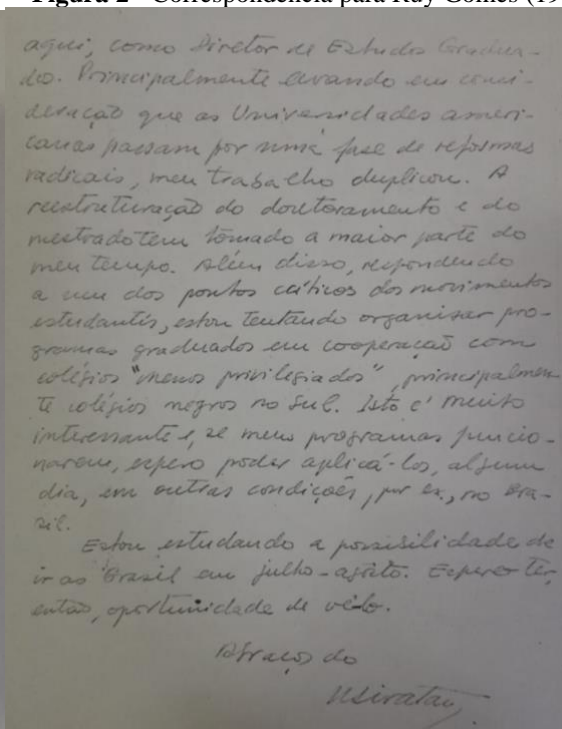 Figura 2 - Correspondência para Ruy Gomes (19
aqui, como Diretor de Estudos Gradua-
do. Principalmente levando em consi-
deração que as Universidades ameri-
canas passam por uma fase de reformas
radicais, meu trabalho duplicou. A
reestruturação do doutoramento e do
mestrado tem tomado a maior parte do
meu tempo. Além disso, respondendo
a um dos pontos críticos dos movimentos
estudantís, estou tentando organizar pro-
gramas graduados em cooperação com
colégios "menos privilegiados", principalmen
te colégios negros no Sul. Isto é muito
interessante e, se meus programas funcio-
narem, espero poder aplicá-los, algum
dia, em outras condições, por ex., no Bra-
sil.
Estou estudando a possibilidade de
ir ao Brasil em julho-agôsto. Espero ter,
então, oportunidade de vê-lo.
Abraços do
Ubiratan